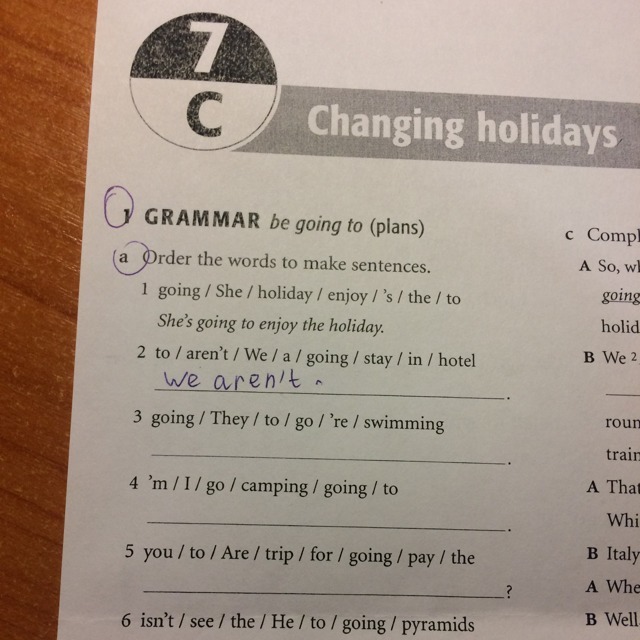 7
C
Changing holidays
1 GRAMMAR be going to (plans)
a Order the words to make sentences.
1 going / She / holiday / enjoy / 's / the / to
She's going to enjoy the holiday.
2 to / aren't / We / a / going / stay / in / hotel
we aren't
.
3 going / They / to / go / 're / swimming
.
4 'm / I / go / camping / going / to
.
5 you / to / Are / trip / for / going / pay / the
?
6 isn't / see / the / He / to / going / pyramids
c Compl
A So, wh
going
holid
B We 2
roun
train
A That
Whi
B Italy
A Whe
B Well